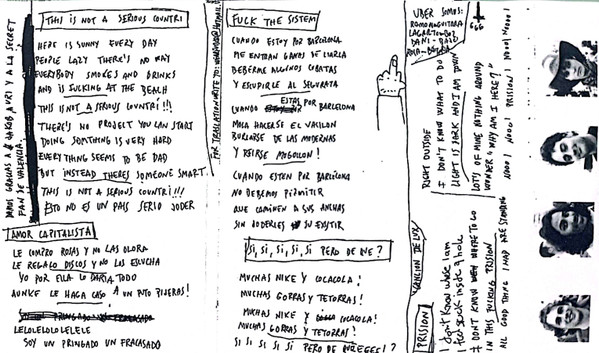 THIS IS NOT A SERIOUS COUNTRI
HERE IS SUNNY EVERY DAY
PEOPLE LAZY THERE'S NO WAY
EVERYBODY SMOKES AND DRINKS
AND IS SUCKING AT THE BEACH
THIS IS NOT A SERIOUS COUNTRI!!!
THERE'S NO PROJECT YOU CAN START
DOING SOMETHING IS VERY HARD
EVERY THING SEEMS TO BE DAD
BUT INSTEAD THERES SOMEONE SMART.
THIS IS NOT A SERIOUS COUNTRI!!!
ESTO NO ES UN PAIS SERIO JODER
FAN DE VALENCIA.
AMOR CAPITALISTA
LE COMPRO ROSAS Y NO LAS OLORA
LE REGALO DISCOS Y NO LOS ESCUCHA
YO POR ELLA LO DARIA TODO
AUNKE LE HAGA CASO A UN PUTO PIJERAS!
LELOLELOLELELE
SOY UN PRINGADO UN FRACASADO
FOR TRASLATION WRITE TO:
FUCK THE SISTEM
CUANDO ESTOY POR BARCELONA
ME ENTRAN GANAS DE LIARLA
BEBERME ALGUNOS CUBATAS
Y ESCUPIRLE AL SEGURATA
CUANDO ESTAS POR BARCELONA
MOLA HACERSE EL VASILON
BURLARSE DE LAS MODERNAS
Y REIRSE MOGOLLON!
CUANDO ESTEN POR BARCELONA
NO DEBEMOS PERMITIR
QUE CAMINEN A SUS ANCHAS
SIN JODERLES SU EXISTIR
SI, SI, SI, SI, SI PERO DE KE?
MUCHAS NIKE Y COCACOLA!
MUCHAS GORRAS Y TETORRAS!
MUCHAS NIKE Y COCACOLA!
MUCHAS GORRAS Y TETORRAS!
SI SI SI SI SI PERO DE
UBER SOMOS:
666
PRISSION
I don't know where I am
I feel stuck inside a hole
I DON'T KNOW WHEN WHERE TO GO
IN THIS FUCKING PRISSION
ALL GOOD THING I HAD ARE STANDING
RIGHT OUTSIDE
I DON'T KNOW WHAT TO DO
LIGHT IS DARK AND I AM DOWN
LOTS OF MINE NOTHING AROUND
WONDER "WHY AM I HERE?"
NOOO! NOOO! PRISSION! NOOO! NOOO!